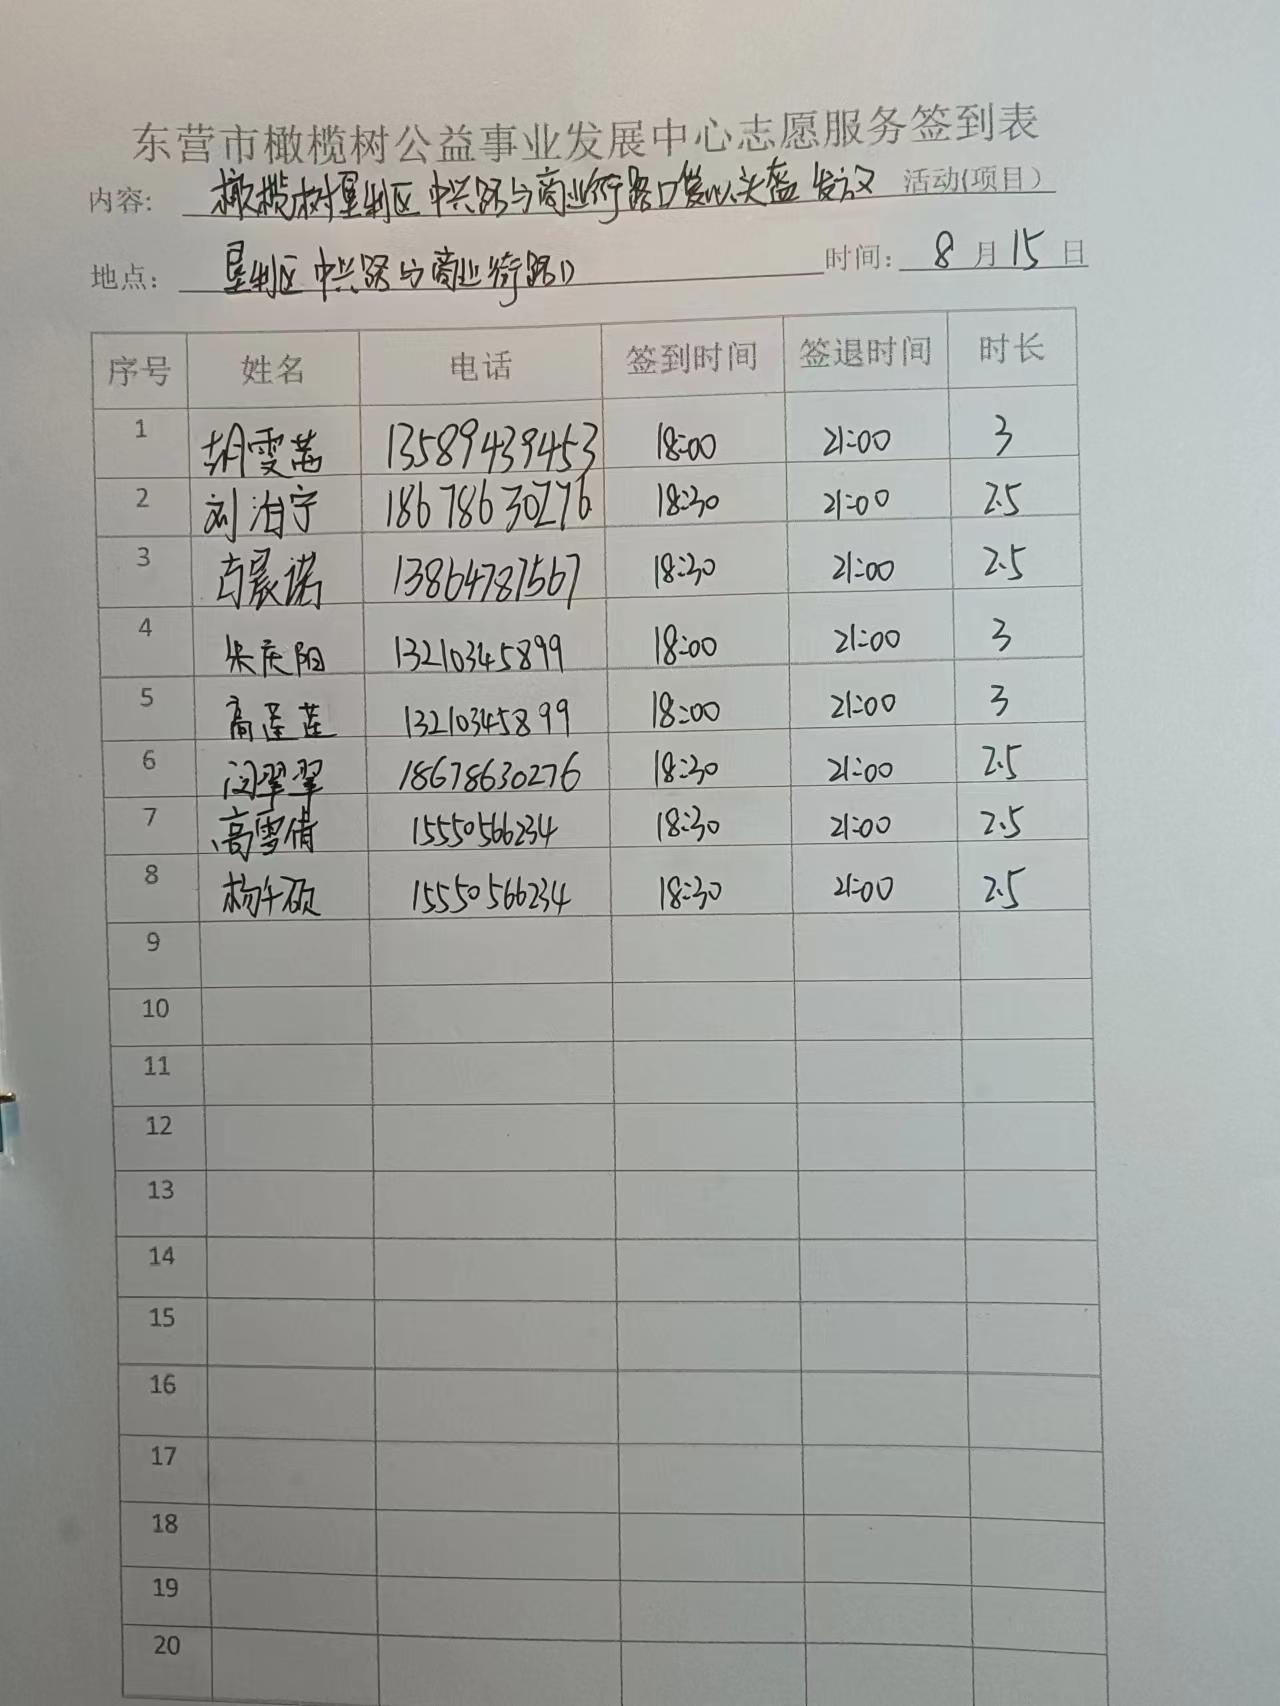 东营市橄榄树公益事业发展中心志愿服务签到表
内容: 橄榄树垦利区中兴路与商业街路口爱心头盔发放 活动(项目)
地点: 垦利区中兴路与商业街路口 时间: 8月15日
序号 姓名 电话 签到时间 签退时间 时长
1 胡雯茜 13589439453 18:00 21:00 3
2 刘泊宁 18678630276 18:30 21:00 2.5
3 晨诺 13864787567 18:30 21:00 2.5
4 朱庆阳 13210345899 18:00 21:00 3
5 高莲莲 13210345899 18:00 21:00 3
6 闫翠翠 18678630276 18:30 21:00 2.5
7 高雪倩 15550566234 18:30 21:00 2.5
8 杨午硕 15550566234 18:30 21:00 2.5
9
10
11
12
13
14
15
16
17
18
19
20